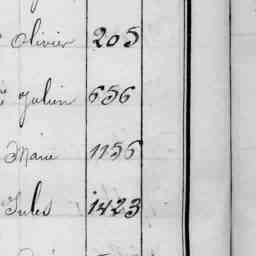 Olivier 205
Julien 656
Marie 1156
Jules 1423